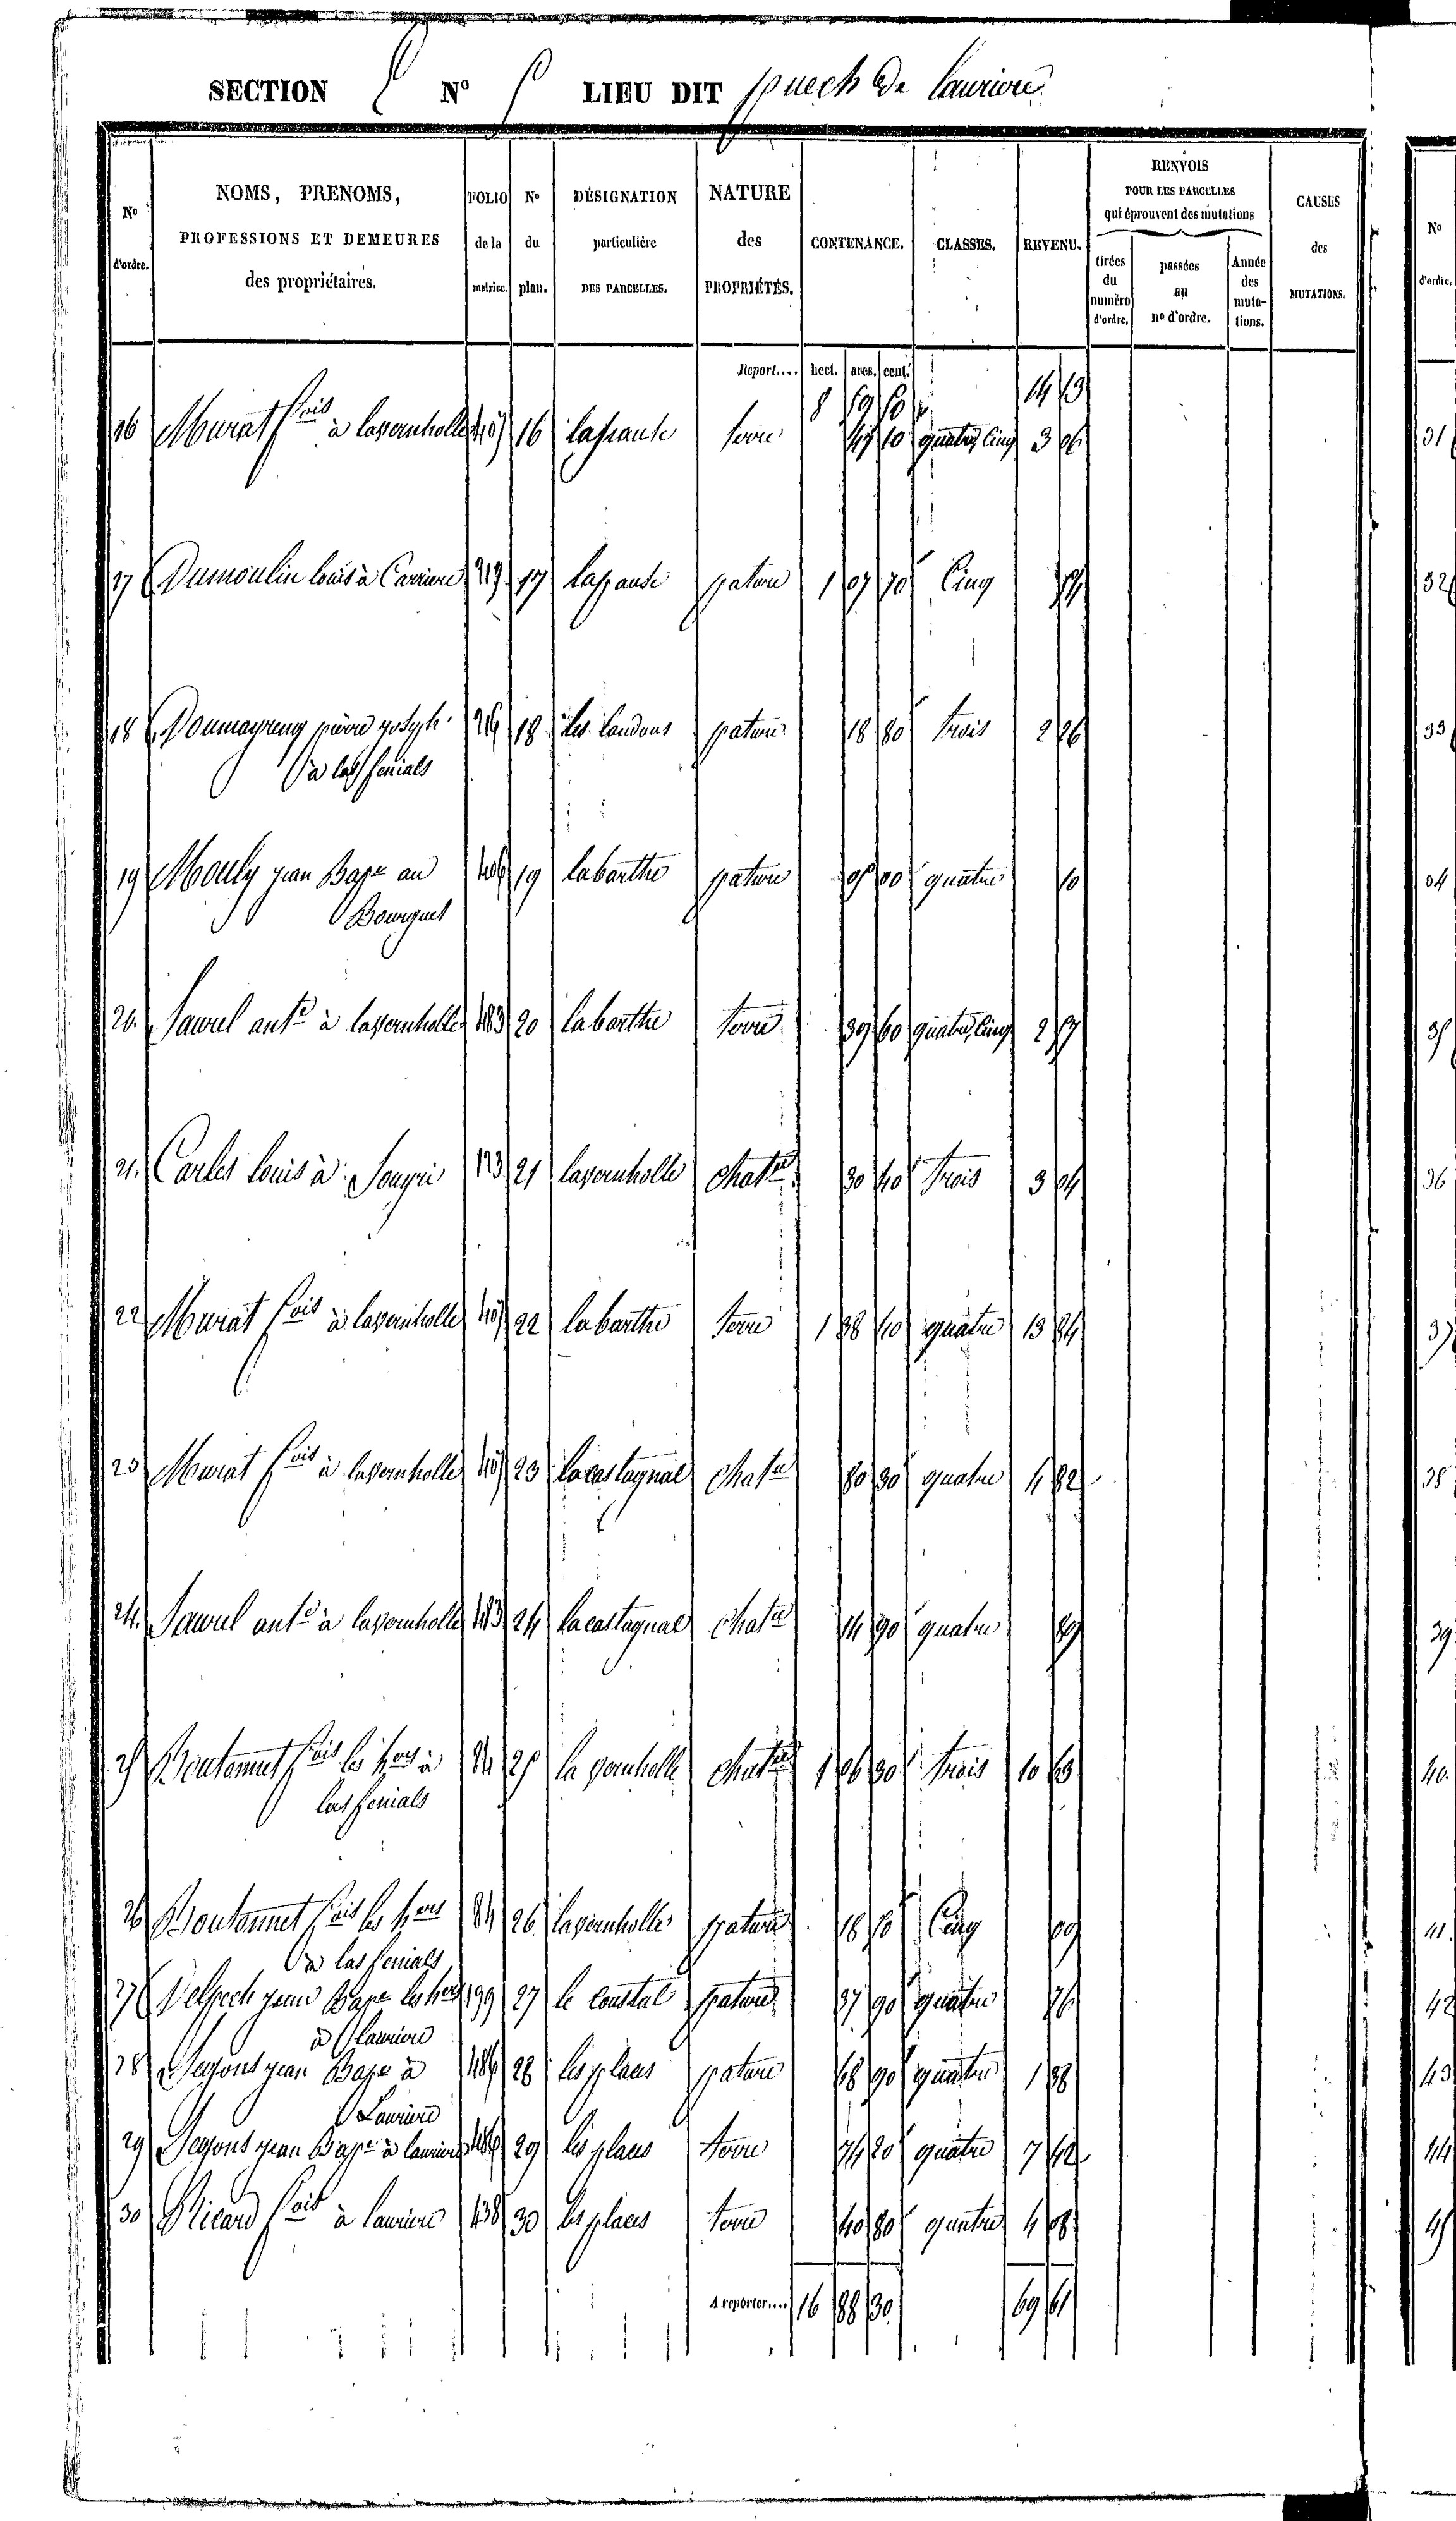 SECTION N° LIEU DIT puech de lauriere
N° d'ordre.
NOMS, PRENOMS, PROFESSIONS ET DEMEURES des propriétaires.
FOLIO de la matrice.
N° du plan.
DÉSIGNATION particulière DES PARCELLES.
NATURE des PROPRIÉTÉS.
CONTENANCE.
CLASSES.
REVENU.
RENVOIS POUR LES PARCELLES qui éprouvent des mutations
tirées du numéro d'ordre.
passées au n° d'ordre.
Année des mutations.
CAUSES des MUTATIONS.
N° d'ordre.
Report.... hect. ares. cent.
8 14 63
16 Murat fois à lavernholle 16 terre 10 quatre, Cinq 3 31
17 Dumoulin louis à Carriere 219 17 pature 1 07 70 Cinq 32
18 pierre joseph 18 les landous pature 18 80 trois 2 26 33
à las fenials
19 Mouly jean Bapte au 406 19 labarthe pature 05 00 quatre 10 34
Bourguet
20. Saurel ante à lavernholle 483 20 labarthe terre 39 60 quatre, Cinq 2 35
21. Carles louis à 123 21 lavernholle chatre 30 40 trois 3 04 36
22 Murat fois à lavernholle 22 labarthe terre 1 38 40 quatre 13 84 37
23 Murat fois à lavernholle 23 lacastagnal chatre 80 30 quatre 4 82 38
24. Saurel ante à lavernholle 483 24 lacastagnal chatre 14 90 quatre 89 39
25 Boutonnet fois les hers à 84 25 la vernholle chatre 1 06 30 trois 10 63 40.
las fenials
26 Boutonnet fois les hers 84 26 lavernholle pature 18 50 Cinq 09 41.
à las fenials
27 Delpech jean Bapte les hers 199 27 le coustal pature 37 90 quatre 76 42
à lauriere
28 jean Bapte à 486 28 les places pature 68 90 quatre 1 38 43
Lauriere
29 jean Bapte à lauriere 486 29 les places terre 74 20 quatre 7 42 44
30 Ricard fois à lauriere 438 30 les places terre 40 80 quatre 4 08 45
A reporter.... 16 88 30 69 61